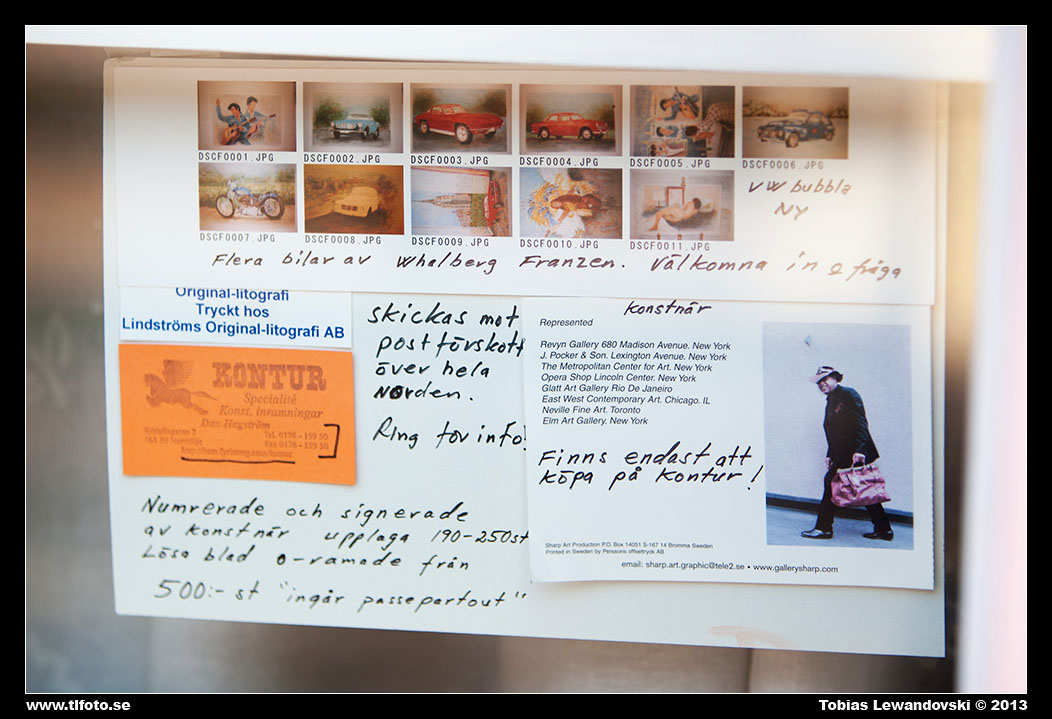 DSCF0001.JPG DSCF0002.JPG DSCF0003.JPG DSCF0004.JPG DSCF0005.JPG DSCF0006.JPG
VW bubbla
NY
DSCF0007.JPG DSCF0008.JPG DSCF0009.JPG DSCF0010.JPG DSCF0011.JPG
Flera bilar av Whalberg Franzen. Välkomna in & fråga
Original-litografi
Tryckt hos
Lindströms Original-litografi AB
KONTUR
Specialité
Konst, inramningar
Dan Hagström
Tel. 0176 - 159 50
761 30 Norrtälje Fax 0176 - 159 50
skickas mot
postförskott
över hela
Norden.
Ring för info!
konstnär
Represented
Revyn Gallery 680 Madison Avenue. New York
J. Pocker & Son. Lexington Avenue. New York
The Metropolitan Center for Art. New York
Opera Shop Lincoln Center. New York
Glatt Art Gallery Rio De Janeiro
East West Contemporary Art. Chicago. IL
Neville Fine Art. Toronto
Elm Art Gallery. New York
Finns endast att
köpa på Kontur!
Sharp Art Production P.O. Box 14051 S-167 14 Bromma Sweden
Printed in Sweden by Perssons offsettryck AB
email: sharp.art.graphic@tele2.se • www.gallerysharp.com
Numrerade och signerade
av konstnär upplaga 190-250st
Lösa blad o-ramade från
500:- st "ingår passepartout"
www.tlfoto.se
Tobias Lewandovski © 2013